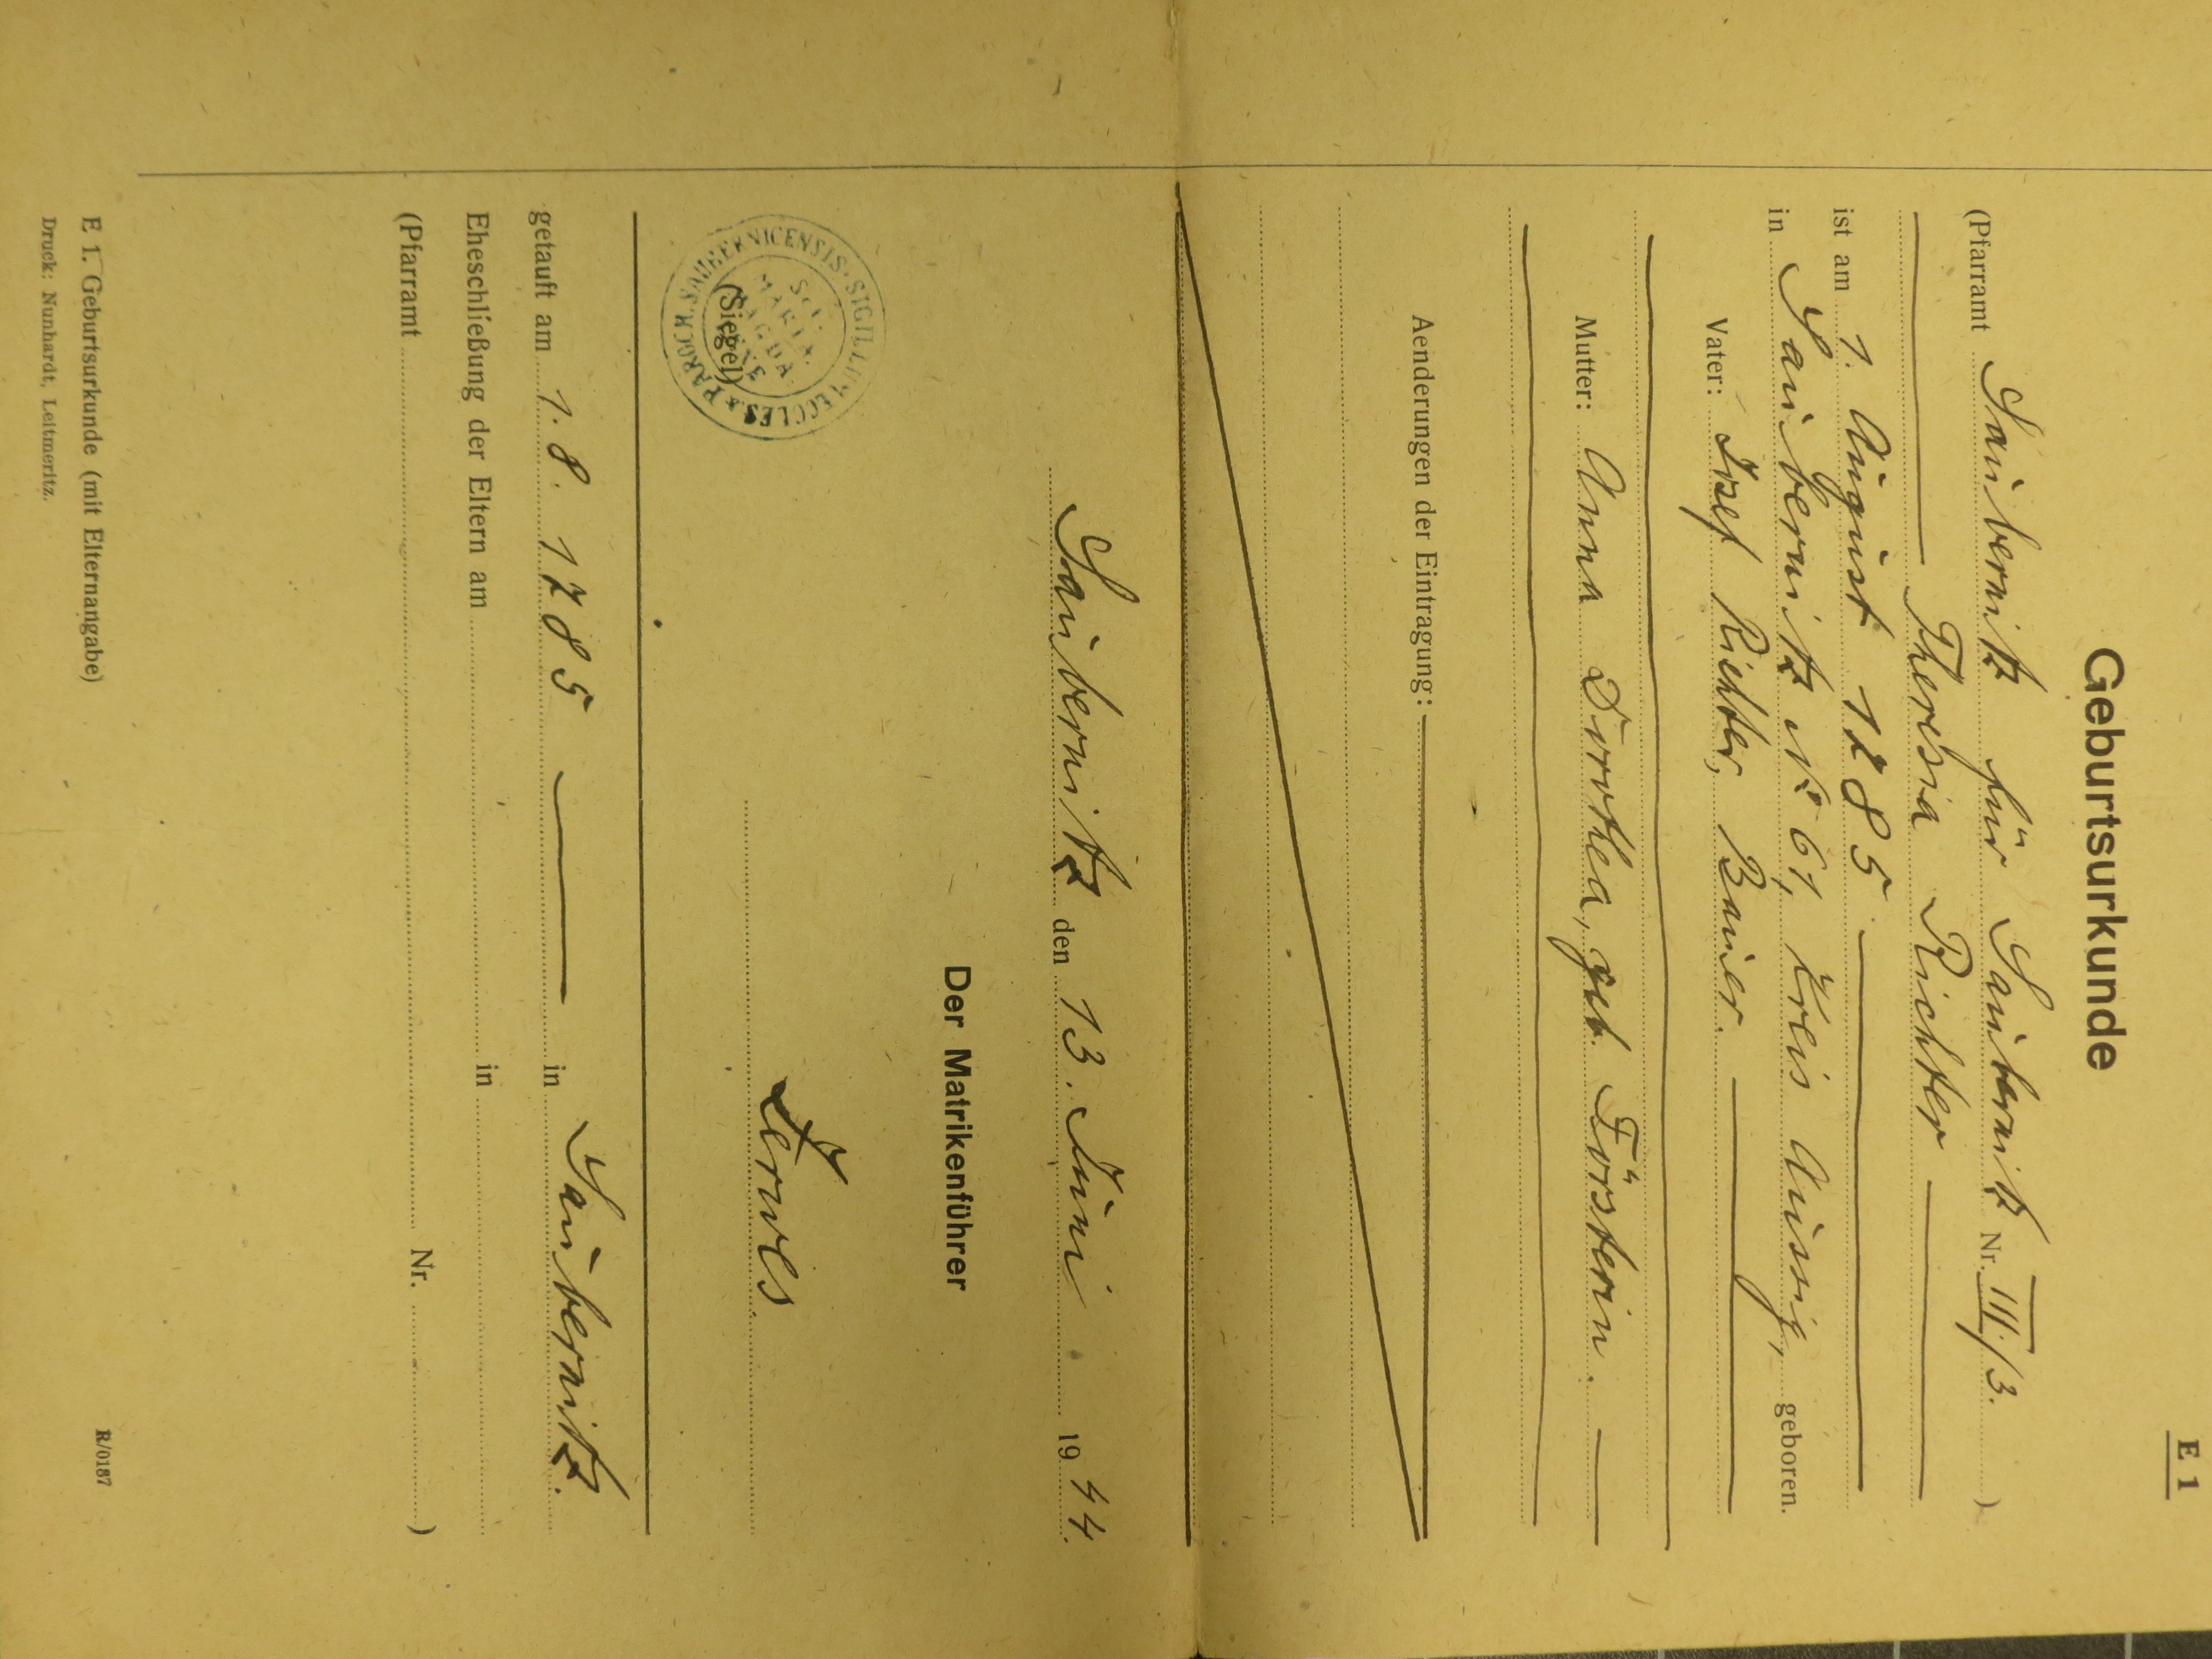 E 1
Geburtsurkunde
(Pfarramt Saubernitz für Saubernitz Nr. III./3. )
Theresia Richter
ist am 1. August 1785
in Saubernitz No 61, Kreis Aussig, geboren.
Vater: Josef Richter, Bauer.
Mutter: Anna Dorothea, geb. Försterin.
Aenderungen der Eintragung:
Saubernitz den 13. Juni 1944.
Der Matrikenführer
SIGILLUM ECCLES. & PAROCH. SAUBERNICENSIS.
(Siegel)
Zerwes.
getauft am 1.8. 1785 in Saubernitz.
Eheschließung der Eltern am in
(Pfarramt Nr. )
E 1. Geburtsurkunde (mit Elternangabe)
R/0187
Druck: Nunhardt, Leitmeritz.